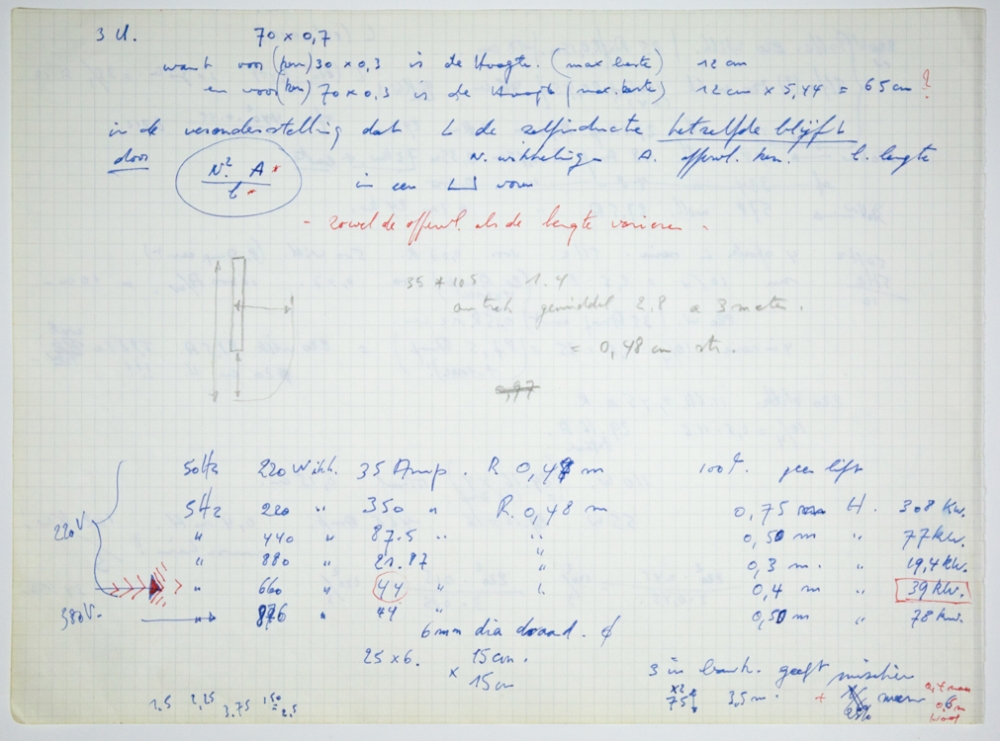 3 U. 70 x 0,7
want voor (kern) 30 x 0,3 is de Hoogte. (max lengte) 12 cm
en voor 70 x 0.3 is de Hoogte (max. lengte) 12 cm x 5,44 = 65 cm ?
in de veronderstelling dat L de zelfinductie hetzelfde blijft
door N² A N. wikkelingen A. oppervl. kern. l. lengte
l in een vorm
- zowel de oppervl. als de lengte varieren.
35 * 105 1.4
omtrek gemiddel 2.8 a 3 meter.
= 0,48 cm
0,97
50Hz 220 Wikk. 35 Amp. R 0,48 m 100%. geen lift
5Hz 220 " 350 " R. 0,48 m 0,75 m H. 308 Kw.
220 V. " 440 " 87.5 " " 0,50 m " 77 kw.
" 880 " 21.87 " 0,3 m. " 19,4 Kw.
" 660 " 44 " " 0,4 m " 39 KW.
380V. " 876 " 44 " 0,50 m " 78 Kw.
6mm dia draad. ¢
25 x 6. 15 cm.
x 15 cm
3 in geeft misschien
x2 75 3,5 m. + 0,6
1.5 2,25 3.75 1,50
= 2,5